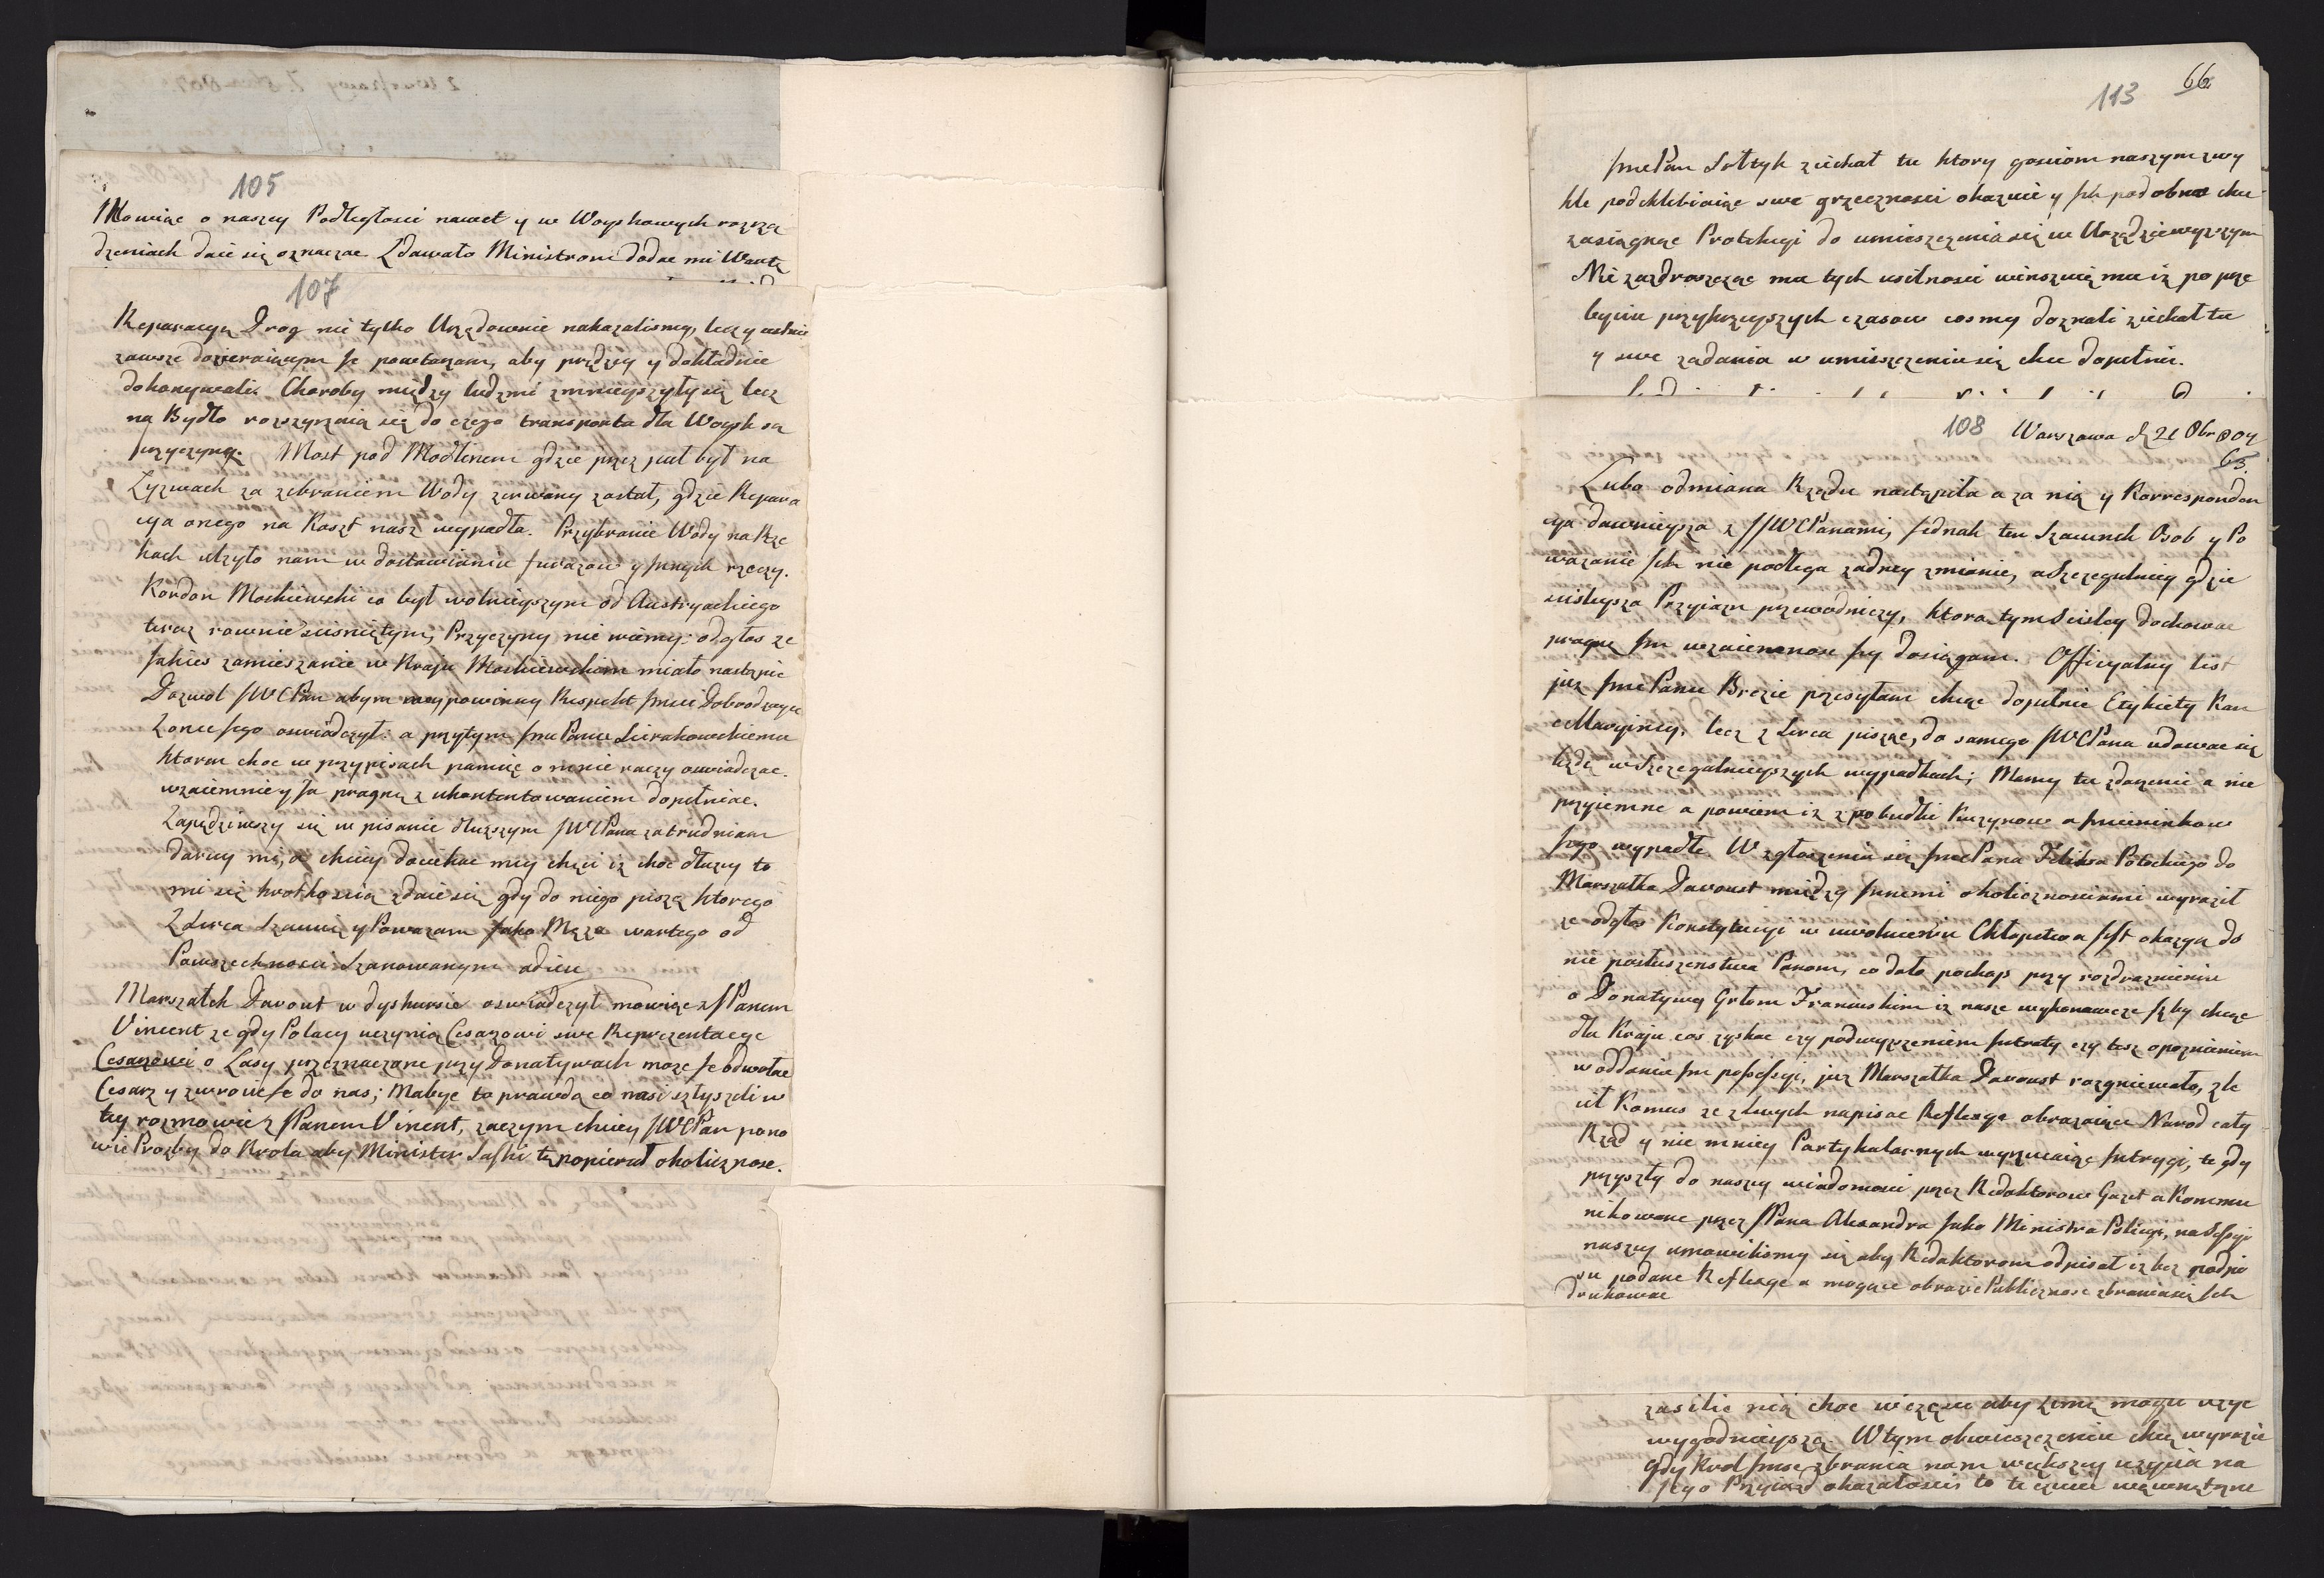 105
Mowiąc o naszey Podległosci nawet y w Woyskowych rozrzą
dzeniach daie się oznaczac Zdawało Ministrom dodac mi Wartę
107
Reparacyą Drog nie tylko Urzędownie nakazalismy, lecz y ustnie
zawsze dozieraiącym Je powtarzam, aby prędzey y dokładnie
dokonywali. Choroby między ludzmi zmnieyszyły się lecz
na Bydło rozszerzaią się do czego transporta dla Woysk są
przyczyną. Most pod Modlinem gdzie przez pul był na
Łyzwach za zebraniem Wody zerwany został, gdzie Repara
cya onego na Koszt nasz wypadła. Przybranie Wody na Rze
kach ulzyło nam w dostawianiu furazow y Jnnych rzeczy.
Kordon Moskiewski co był wolnieyszym od Austryackiego
teraz rownie scisniętym, Przyczyny nie wiemy: odgłos ze
Jakies zamieszanie w Kraju Moskiewskim miało nastąpic
Dozwol JWWPan abym naypowinny Respekt Jmci Dobrodzieyce
Zonie Jego oswiadczył: a przytym Jmc Panu Sierakowskiemu
ktoren choc w przypisach pamięc o mnie raczy oswiadczac.
wzaiemnie y Ja pragnę z ukontentowaniem dopełniac.
Zapędziwszy się w pisanie dłuzszym JWWPana zatrudniam
daruy mi, a chciey dociekac mey chęci iz choc dłuzey to
mi się krotkoscią zdaie się gdy do niego piszę ktorego
Z Serca Szanuię y Powazam Jako Męza wartego od
Powszechnosci Szanowanym adieu
Marszałek Davout w dyskursie oswiadczył mowiąc z JPanem
Vincent ze gdy Polacy uczynią Cesarzowi swe Reprezentacye
Cesarzowi o Lasy przeznaczone przy Donatywach moze Je odwołac
Cesarz y zwroci Je do nas; Mabyc to prawda co nasi słyszeli w
tey rozmowie z JPanem Vincent, zaczym chciey JWWPan pono
wic Prozby do Krola aby Minister Saski tę popierał okolicznosc.
113
66
Jmc Pan Sołtyk ziechał tu ktory gosciom naszym zwy
kle podchlebiaiąc swe grzecznosci okazuie y Jch podobno chce
zasiągnąc Protekcyi do umieszczenia się w Urzędzie wyzszym
Nie zazdroszcząc mu tych usilnosci winszuię mu iz po prze
byciu przykrzeyszych czasow cosmy doznali ziechał tu
y swe ządania w umieszczeniu się chce dopełnic.
108
Warszawa d 21 8br 807
63.
Lubo odmiana Rządu nastąpiła a za nią y Korresponden
cya dawnieysza z JJWWPanami, Jednak ten Szacunek Osob y Po
wazanie Jch nie podlega zadney zmianie, a Szczegulniey gdzie
scisleysza Przyiazn przewodniczy, ktora tym Scisley dochowac
pragnę Jm wzaiemnosc Jey dosiągam. Officyalny list
juz Jmc Panu Brezie przesyłam chcąc dopełnic Etykiety Kan
cellaryiney, lecz z Serca pisząc, do samego JWWPana udawac się
będę w Szczegulnieyszych wypadkach; Mamy tu zdarzenie a nie
przyiemne a powiem iz z pobudki Kuzynow a Jmienników
Jego wypadłe. W zgłoszeniu się Jmc Pana Felixa Potockiego do
Marszałka Davoust między Jnnemi okolicznosciami wyraził
ze odgłos Konstytucyi w uwolnieniu Chłopstwa Jest okazyą do
nie posłuszenstwa Panom, co dało pochop przy rozdraznieniu
o Donatywę Grłom Francuskim iz nasze wykonawcze Jzby chcąc
dla Kraju cos zyskac czy podwyzszeniem Jntraty czy tesz opoznieniem
w oddaniu Jm possessyi, juz Marszałka Davoust rozgniewało, zle
cił Komus ze z Swych napisac Reflexye obrazaiące Narod cały
Rząd y nie mniey Partykularnych wyrzucaiąc Jntrygi, te gdy
przyszły do naszey wiadomosci przez Redaktorow Gazet a Kommu
nikowane przez JPana Alexandra Jako Ministra Policyi, na Sessyi
naszey umowilismy się aby Redaktorom odpisał iz bez podpi
su podane Reflexye a mogące obrazic Publicznosc zbrania się Jch
drukowac
zasilic nią choc w częsci aby zimę mogli uzyc
wygodnieyszą. W tym obwieszczeniu chcę wyrazic
gdy Krol Jmsc zbrania nam większey uzycia na
Jego Przyiazd okazałosci to te czucie wewnętrzne